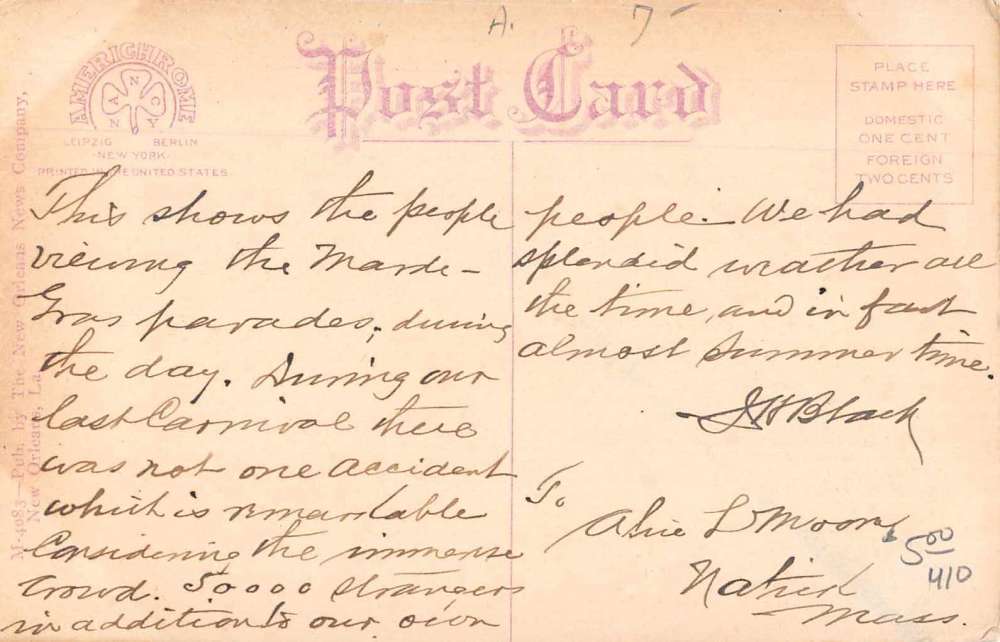 A. 7-
AMERICHROME
N
A N C Y
LEIPZIG BERLIN
NEW YORK
PRINTED IN THE UNITED STATES
Post Card
PLACE
STAMP HERE
DOMESTIC
ONE CENT
FOREIGN
TWO CENTS
M-4983—Pub. by The New Orleans News Company,
New Orleans, La.
This shows the people
viewing the Marde-
Gras parades, during
the day. During our
last Carnival there
was not one accident
which is remarkable
Considering the immense
crowd. 50000 strangers
in addition to our own
people. We had
splendid weather all
the time, and in fact
almost summer time.
J H Black
To
Alice L Moore
Natick
Mass.
5 00
410